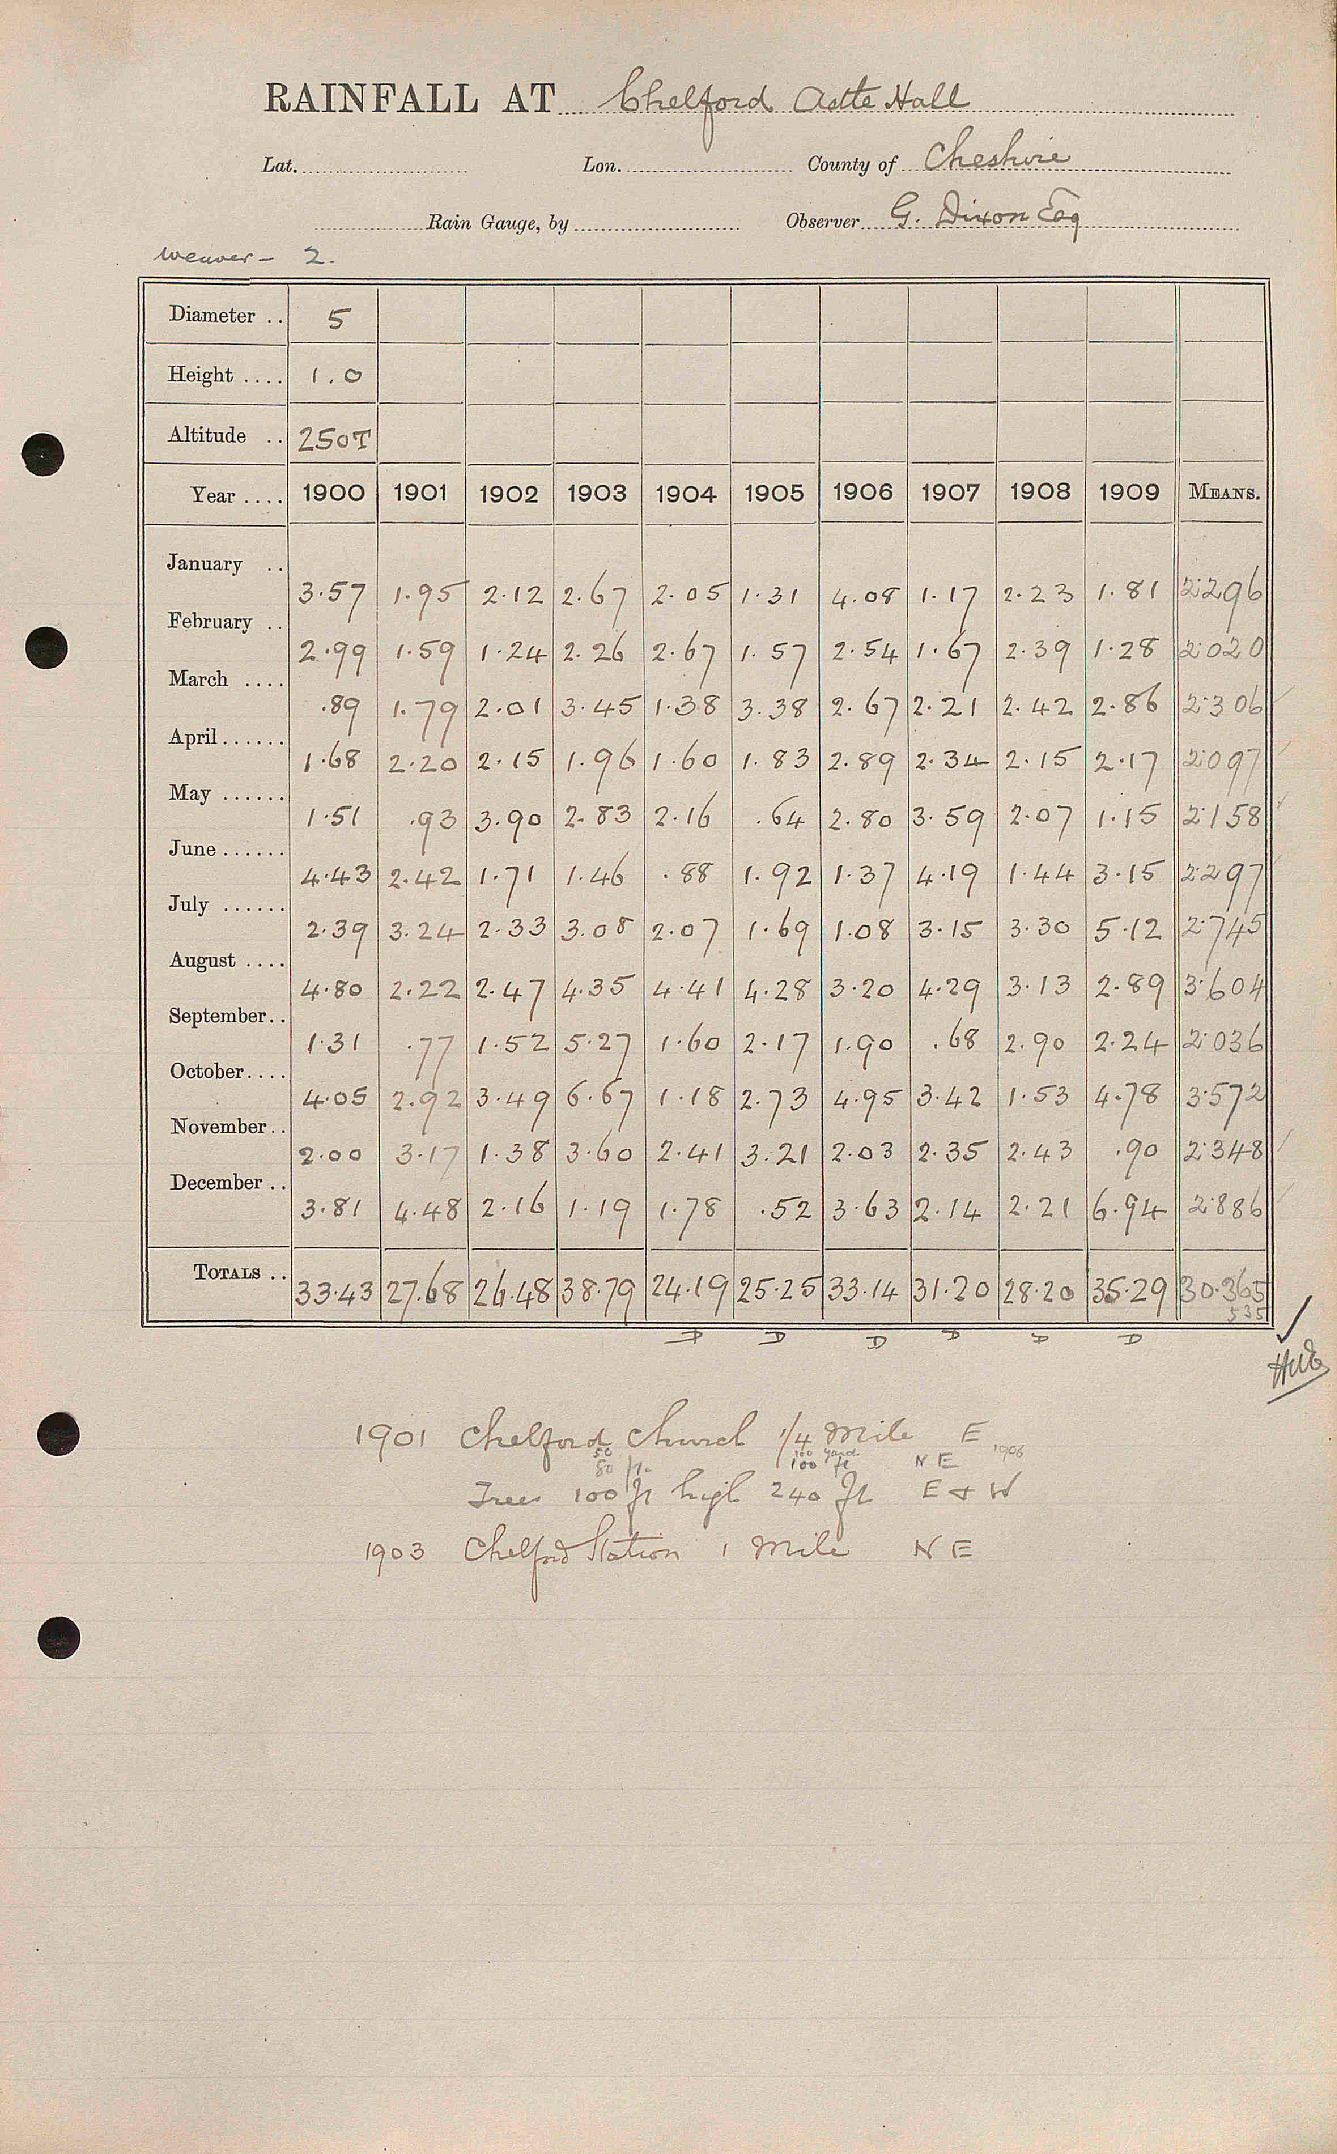 RAINFALL AT Chelford Astle Hall
Lat. Lon. County of Cheshire
Rain Gauge, by Observer G. Dixon Esq
Weaver - 2.
Diameter .. 5
Height .... 1.0
Altitude .. 250T
Year .... 1900 1901 1902 1903 1904 1905 1906 1907 1908 1909 MEANS.
January .. 3.57 1.95 2.12 2.67 2.05 1.31 4.08 1.17 2.23 1.81 2.296
February .. 2.99 1.59 1.24 2.26 2.67 1.57 2.54 1.67 2.39 1.28 2.020
March .... .89 1.79 2.01 3.45 1.38 3.38 2.67 2.21 2.42 2.86 2.306
April...... 1.68 2.20 2.15 1.96 1.60 1.83 2.89 2.34 2.15 2.17 2.097
May ...... 1.51 .93 3.90 2.83 2.16 .64 2.80 3.59 2.07 1.15 2.158
June ...... 4.43 2.42 1.71 1.46 .88 1.92 1.37 4.19 1.44 3.15 2.297
July ...... 2.39 3.24 2.33 3.08 2.07 1.69 1.08 3.15 3.30 5.12 2.745
August .... 4.80 2.22 2.47 4.35 4.41 4.28 3.20 4.29 3.13 2.89 3.604
September.. 1.31 .77 1.52 5.27 1.60 2.17 1.90 .68 2.90 2.24 2.036
October.... 4.05 2.92 3.49 6.67 1.18 2.73 4.95 3.42 1.53 4.78 3.572
November.. 2.00 3.17 1.38 3.60 2.41 3.21 2.03 2.35 2.43 .90 2.348
December .. 3.81 4.48 2.16 1.19 1.78 .52 3.63 2.14 2.21 6.94 2.886
TOTALS .. 33.43 27.68 26.48 38.79 24.19 25.25 33.14 31.20 28.20 35.29 30.365
535
D D D D D D
1901 Chelford Church 1/4 Mile E
50 100 yard 1906
80 ft. 100 ft NE
Trees 100 ft high 240 ft E & W
1903 Chelford Station 1 Mile NE